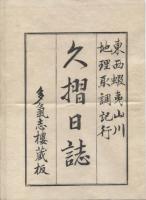 東西蝦夷山川
地理取調記行
久摺日誌
多氣志樓蔵板